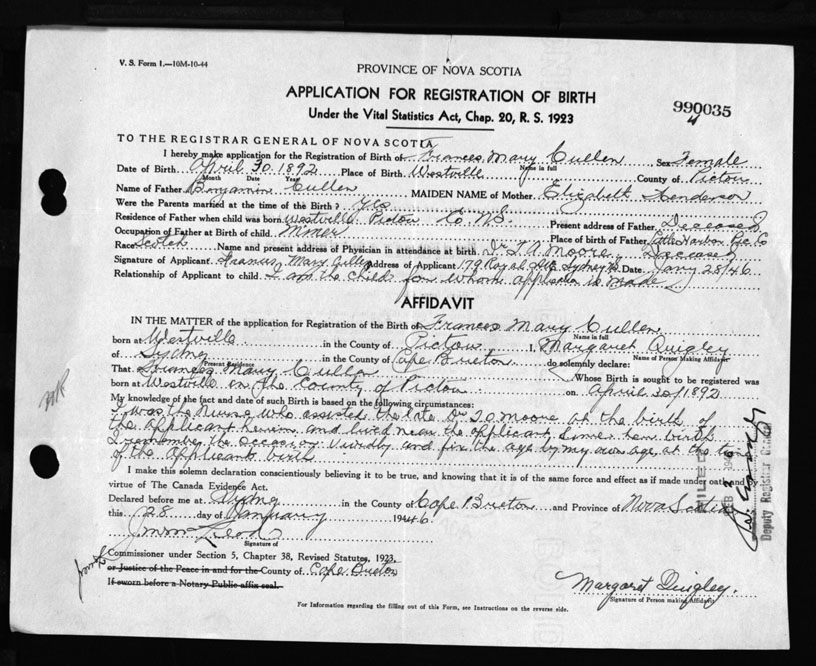 V. S. Form 1.—10M-10-44
PROVINCE OF NOVA SCOTIA
APPLICATION FOR REGISTRATION OF BIRTH
Under the Vital Statistics Act, Chap. 20, R. S. 1923
990035
TO THE REGISTRAR GENERAL OF NOVA SCOTIA
I hereby make application for the Registration of Birth of Frances Mary Cullen Sex Female
Name in full
Date of Birth April 30 1892 Place of Birth Westville County of Pictou
Month Date Year
Name of Father Benjamin Cullen MAIDEN NAME of Mother Elizabeth Henderson
Were the Parents married at the time of the Birth? Yes
Residence of Father when child was born Westville Pictou Co N.S. Present address of Father Deceased
Occupation of Father at Birth of child Miner Place of birth of Father
Race Scotch Name and present address of Physician in attendance at birth Dr Moore, Deceased
Signature of Applicant Frances Mary Address of Applicant 79 Royal Ave Sydney Date Jany 28/46
Relationship of Applicant to child I am the child for whom application is made
AFFIDAVIT
IN THE MATTER of the application for Registration of the Birth of Frances Mary Cullen
Name in full
born at Westville in the County of Pictou I, Margaret Quigley
Name of Person Making Affidavit
of Sydney in the County of Cape Breton do solemnly declare:
Present Residence
That Frances Mary Cullen Whose Birth is sought to be registered was
born at Westville in the County of Pictou on April 30/1892
My knowledge of the fact and date of such Birth is based on the following circumstances:
I was the Nurse who assisted the late Dr Moore at the birth of
the applicant herein and lived near the applicant since her birth
I remember the occasion vividly and fix the age by my own age at the
of the applicants birth
I make this solemn declaration conscientiously believing it to be true, and knowing that it is of the same force and effect as if made under oath and
virtue of The Canada Evidence Act.
Declared before me at Sydney in the County of Cape Breton and Province of Nova Scotia
this 28 day of January 1946
Signature of
Commissioner under Section 5, Chapter 38, Revised Statutes, 1923,
or Justice of the Peace in and for the County of Cape Breton
If sworn before a Notary Public affix seal.
Margaret Quigley.
Signature of Person making Affidavit
For Information regarding the filling out of this Form, see Instructions on the reverse side.
FILED
FEB
Deputy Registrar General